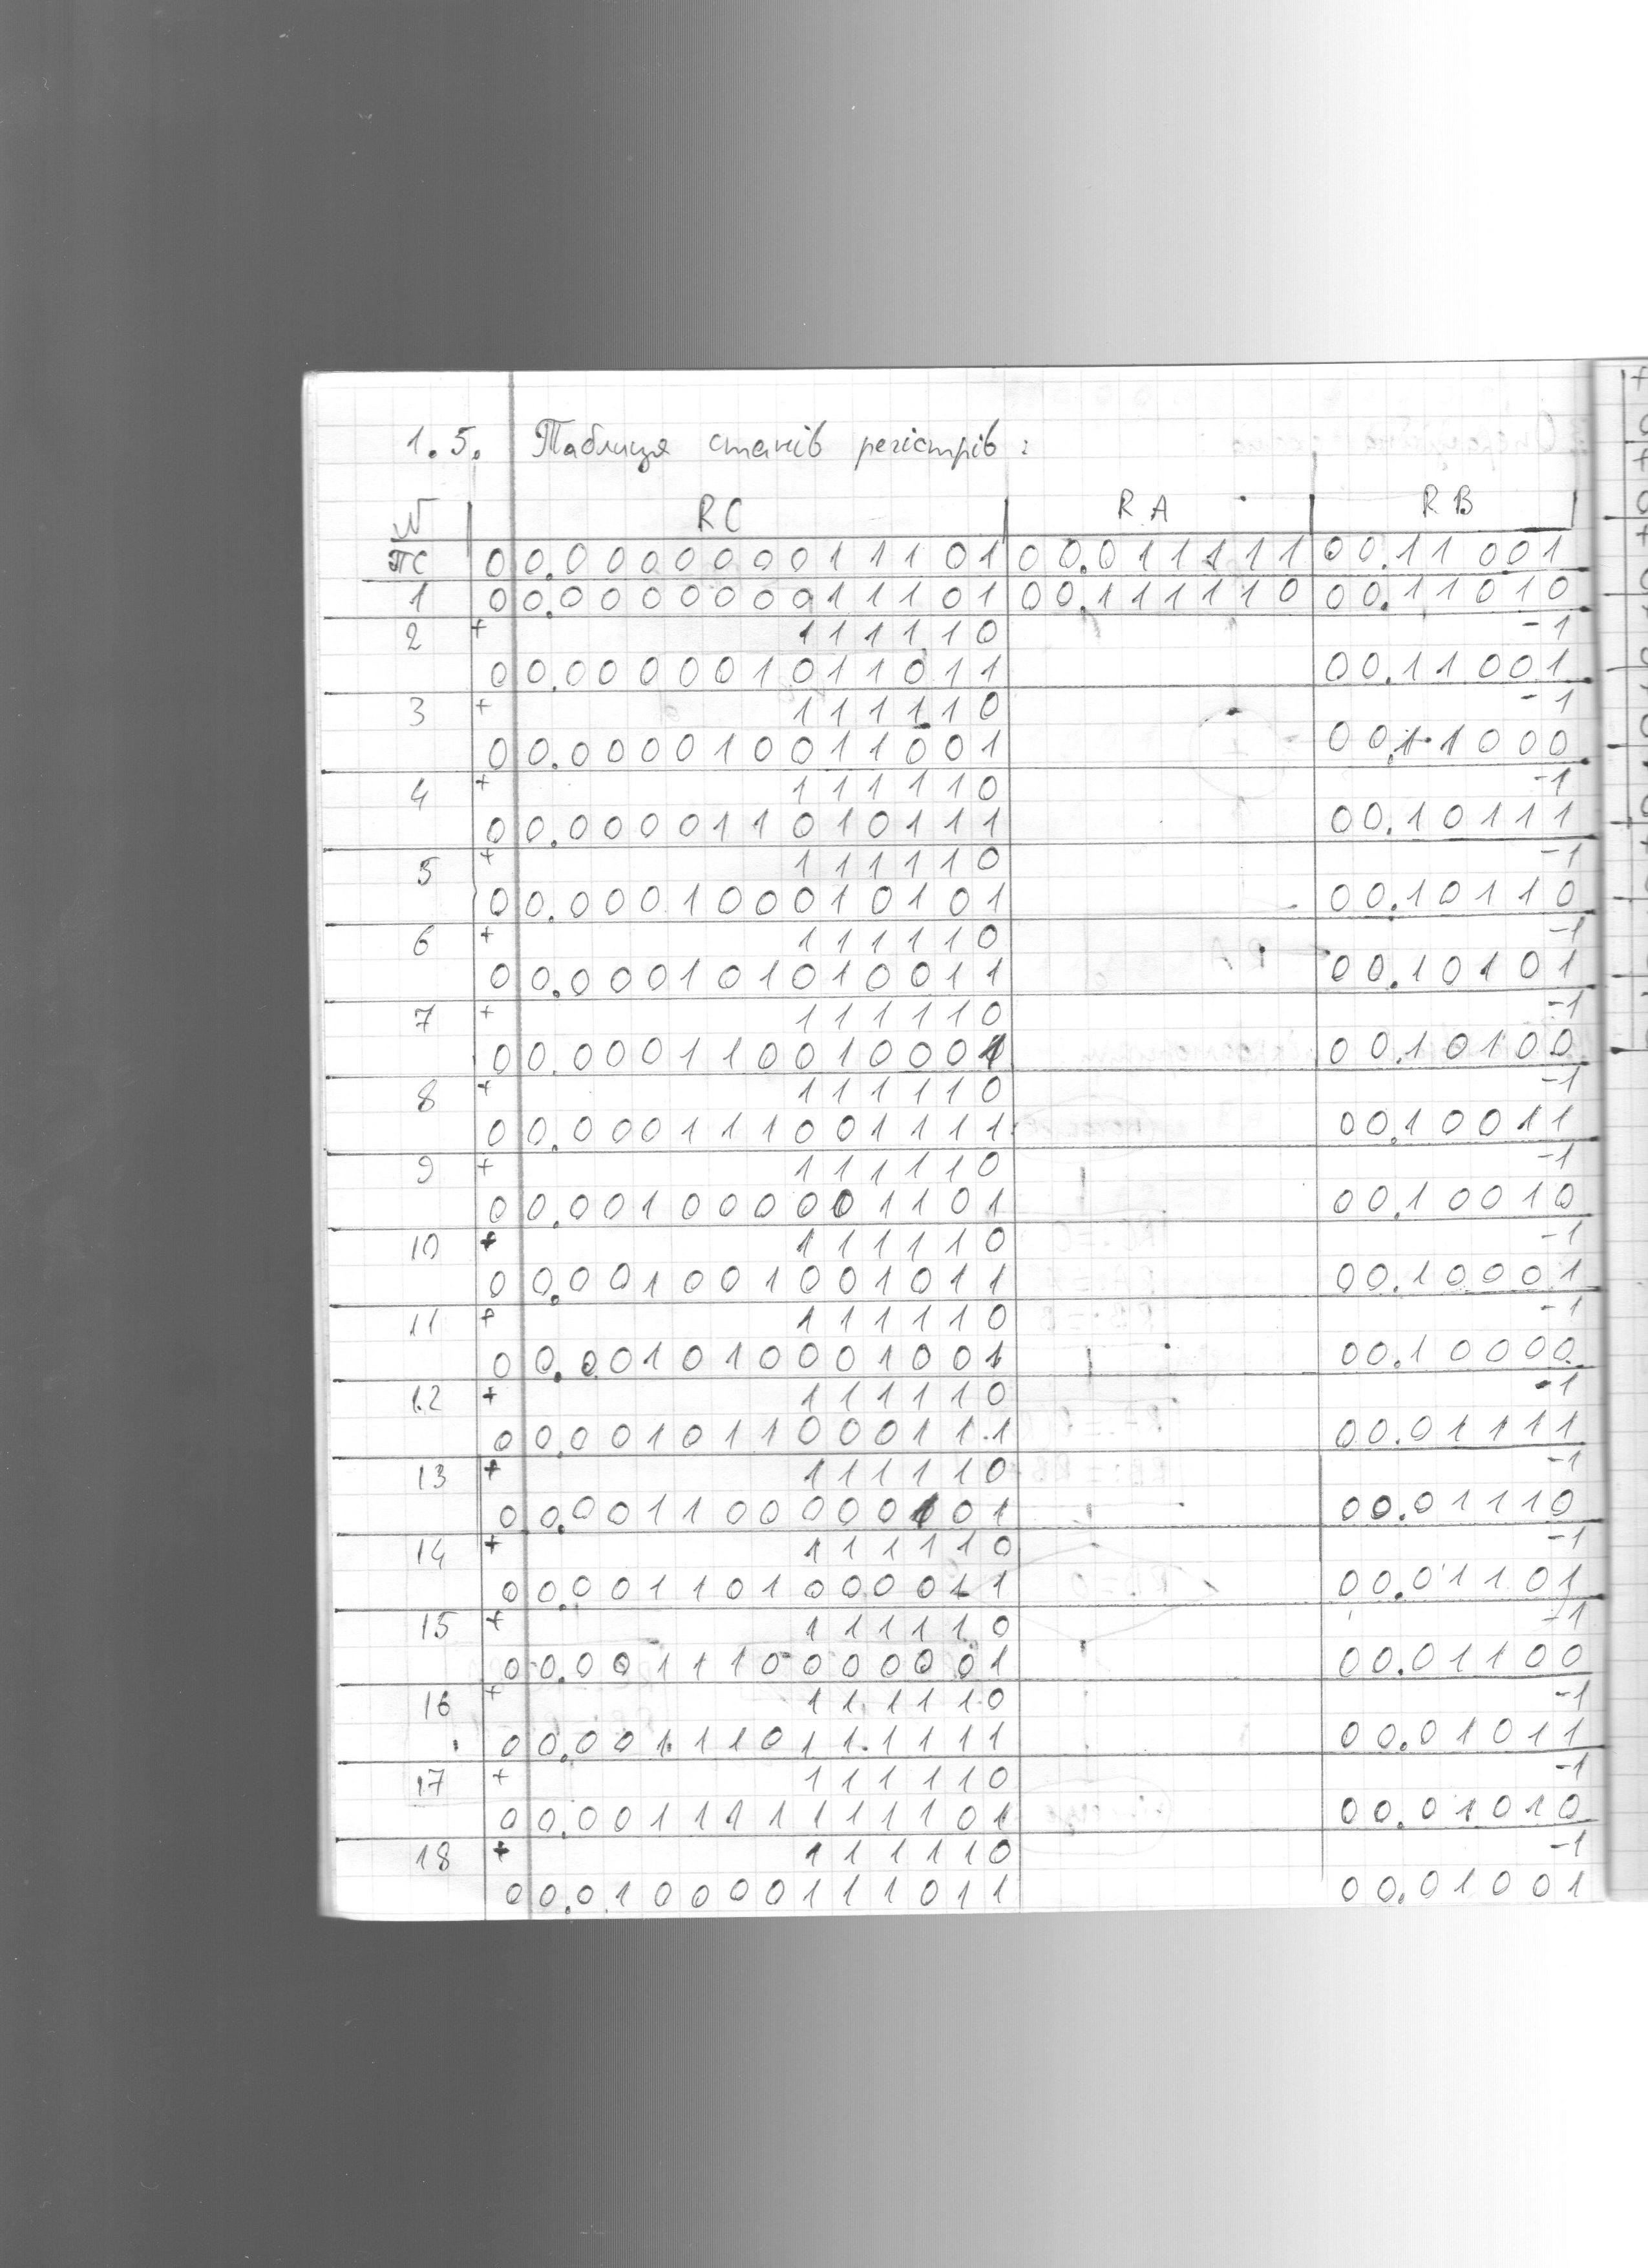 1.5. Таблиця станів регістрів:
N RC RA RB
ПС 00.000000011101 00.011111 00.11001
1 00.000000011101 00.111110 00.11010
2 + 111110 -1
00.000001011011 00.11001
3 + 111110 -1
00.000010011001 00.11000
4 + 111110 -1
00.000011010111 00.10111
5 + 111110 -1
00.000100010101 00.10110
6 + 111110 -1
00.000101010011 00.10101
7 + 111110 -1
00.000110010001 00.10100
8 + 111110 -1
00.000111001111 00.10011
9 + 111110 -1
00.001000001101 00.10010
10 + 111110 -1
00.001001001011 00.10001
11 + 111110 -1
00.001010001001 00.10000
12 + 111110 -1
00.001011000111 00.01111
13 + 111110 -1
00.001100000101 00.01110
14 + 111110 -1
00.001101000011 00.01101
15 + 111110 -1
00.001110000001 00.01100
16 + 111110 -1
00.001110111111 00.01011
17 + 111110 -1
00.001111111101 00.01010
18 + 111110 -1
00.010000111011 00.01001